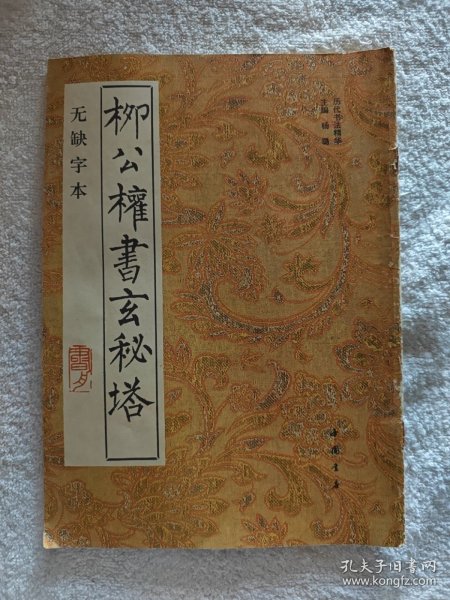 历代书法精华
主编 杨璐
柳公權書玄秘塔
无缺字本
中国书店
孔夫子旧书网
www.kongfz.com